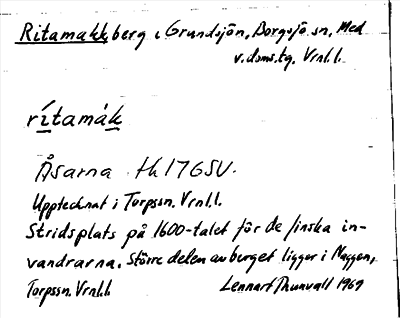 Ritamakkberg i Grundsjön, Borgsjö sn, Med
v.doms.tg. Vrnl.l.
rítamák
Åsarna th17GSV.
Upptecknat i Torpssn. Vrnl.l.
Stridsplats på 1600-talet för de finska in-
vandrarna. Större delen av berget ligger i Naggen,
Torpssn. Vrnl.l Lennart Thunvall 1969